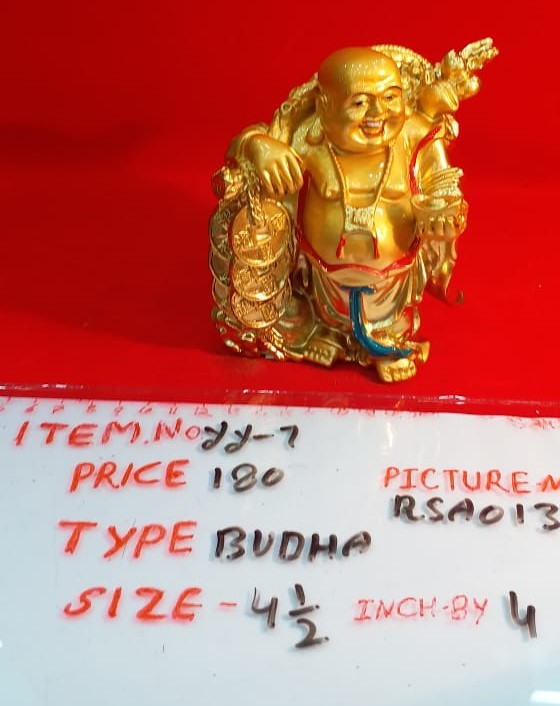 ITEM.NO yy-7
PRICE 180
PICTURE-N
RSA013
TYPE BUDHA
SIZE - 4 1/2 INCH-BY 4